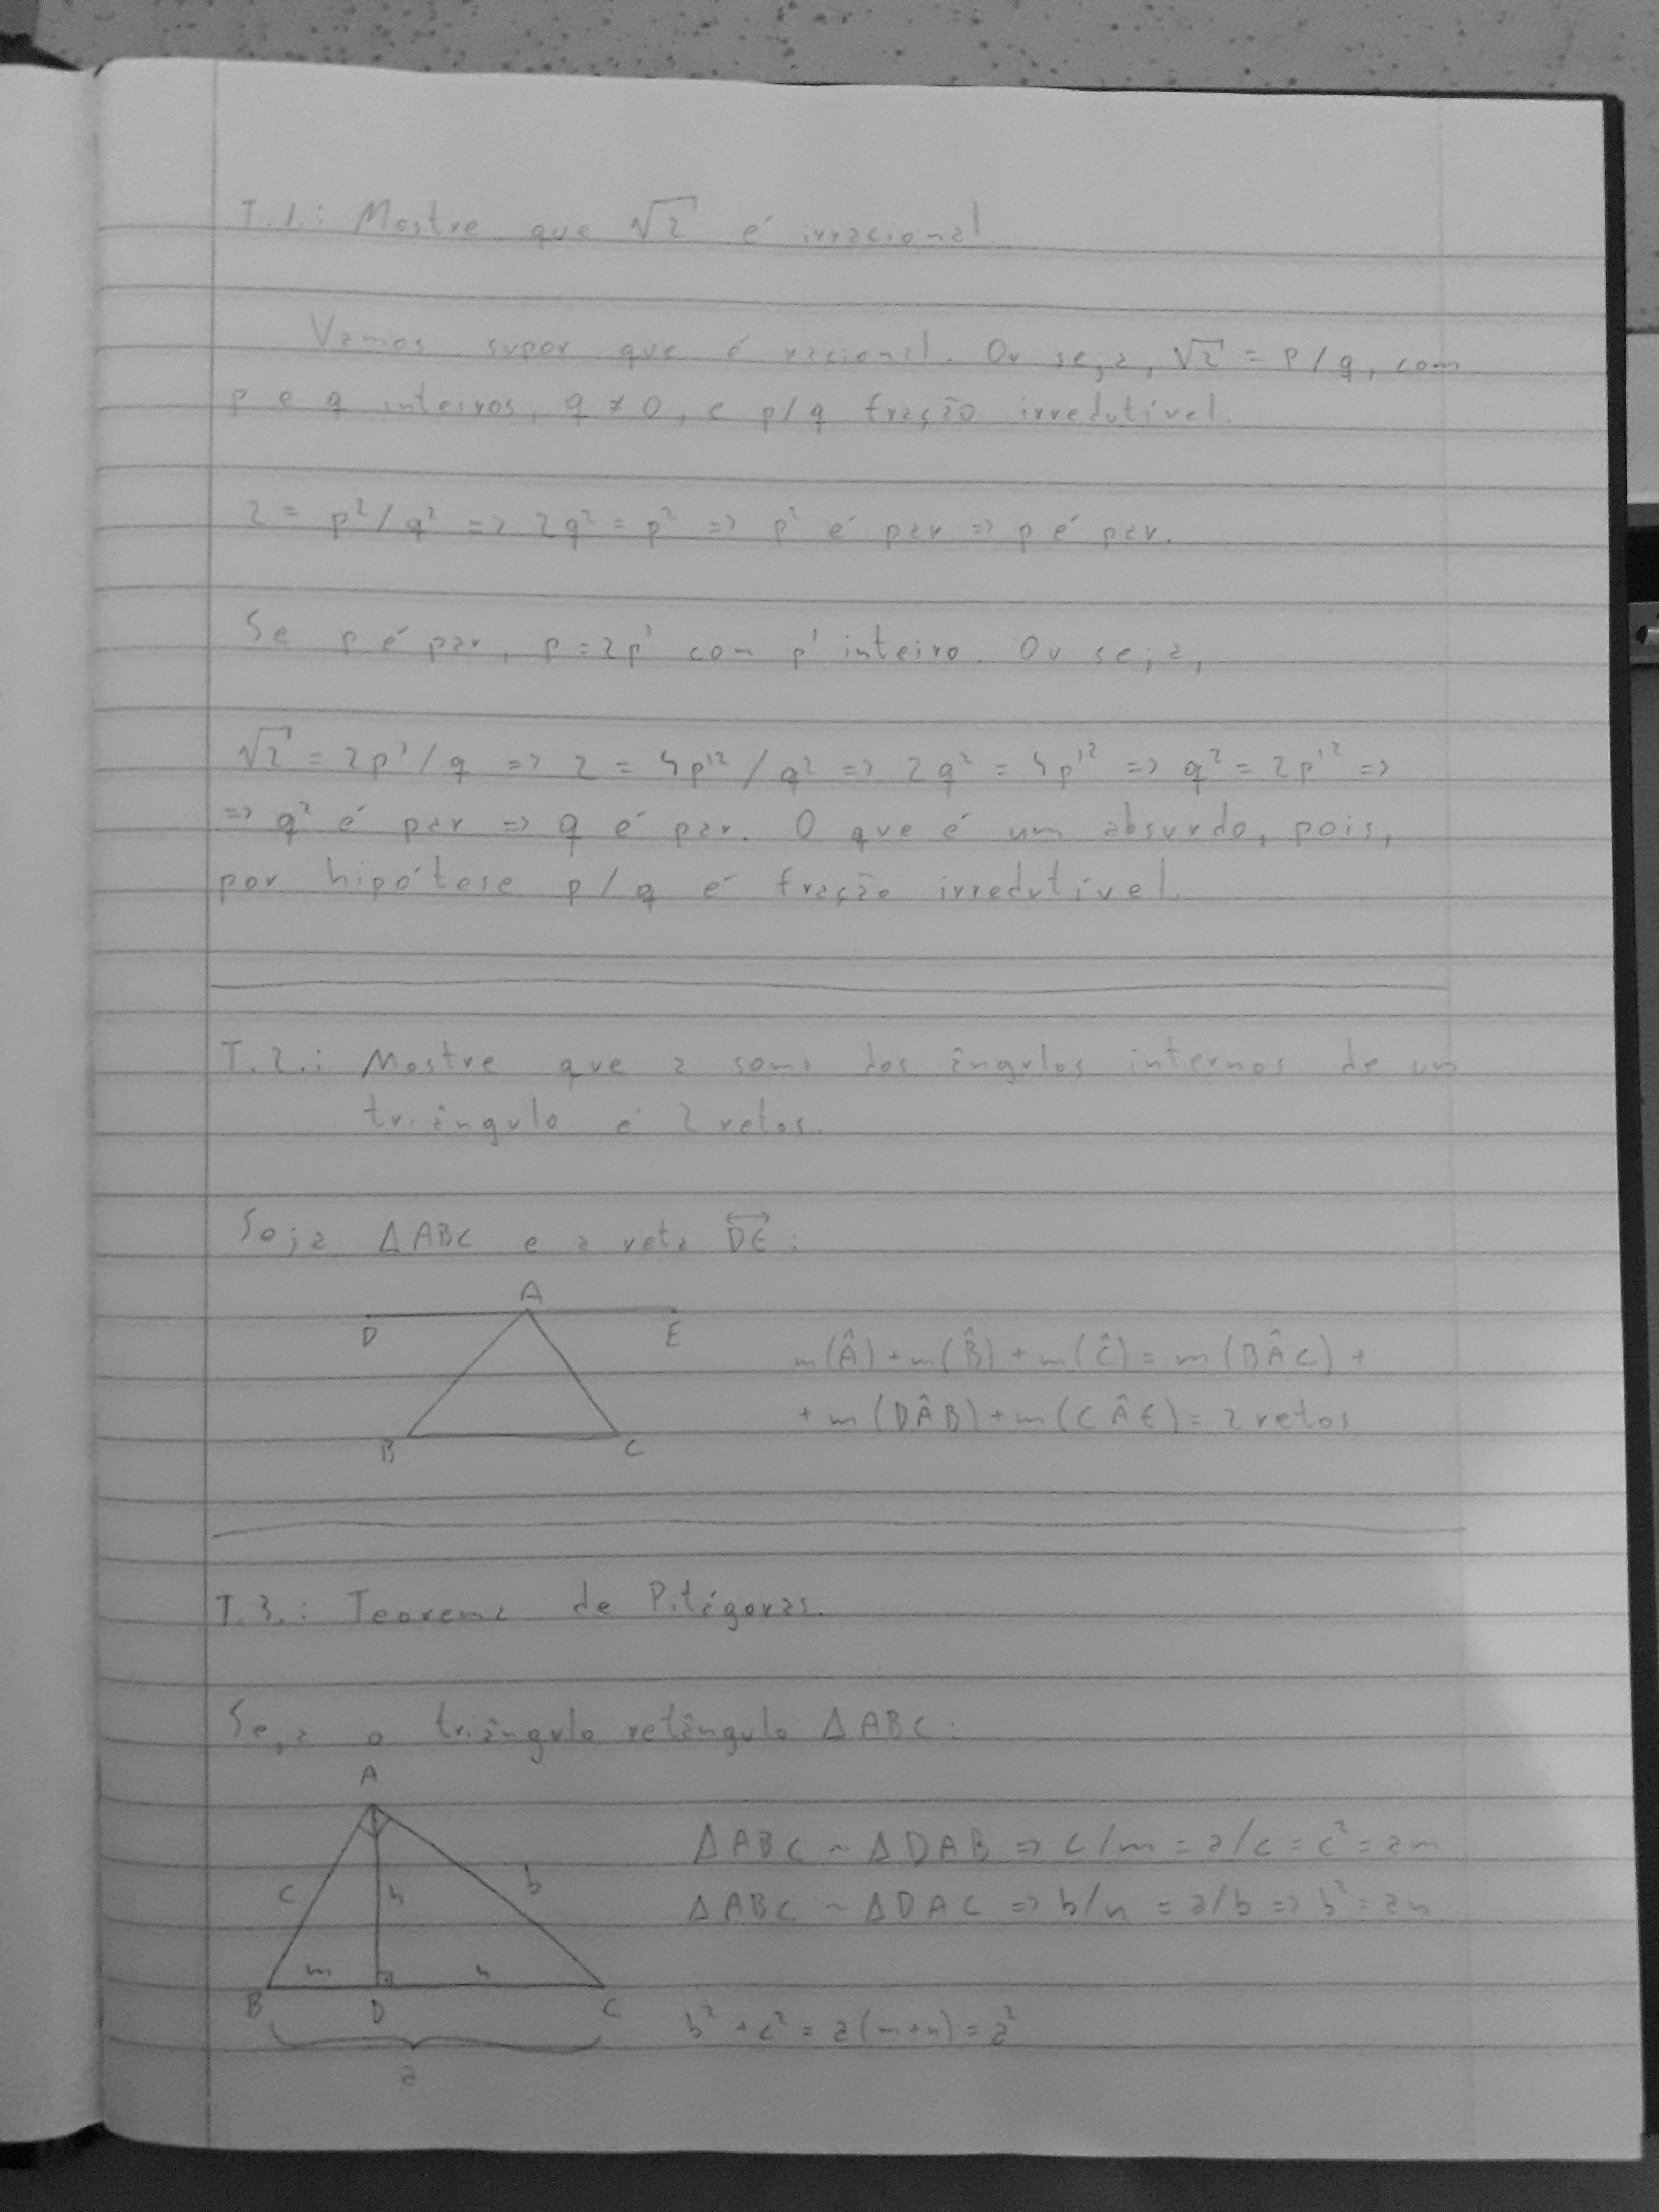 T.1.: Mostre que √2 é irracional
Vamos supor que é racional. Ou seja, √2 = p/q, com
p e q inteiros, q ≠ 0, e p/q fração irredutível.
2 = p²/q² => 2q² = p² => p² é par => p é par.
Se p é par, p = 2p' com p' inteiro. Ou seja,
√2 = 2p'/q => 2 = 4p'²/q² => 2q² = 4p'² => q² = 2p'² =>
=> q² é par => q é par. O que é um absurdo, pois,
por hipótese p/q é fração irredutível.
T.2.: Mostre que a soma dos ângulos internos de um
triângulo é 2 retos.
Seja ΔABC e a reta DE:
A
D E
m(Â) + m(B̂) + m(Ĉ) = m(BÂC) +
+ m(DÂB) + m(CÂE) = 2 retos
B C
T.3.: Teorema de Pitágoras.
Seja o triângulo retângulo ΔABC:
A
ΔABC ~ ΔDAB => c/m = a/c = c² = am
ΔABC ~ ΔDAC => b/n = a/b => b² = an
c h b
m n
B D C
b² + c² = a(m+n) = a²
a